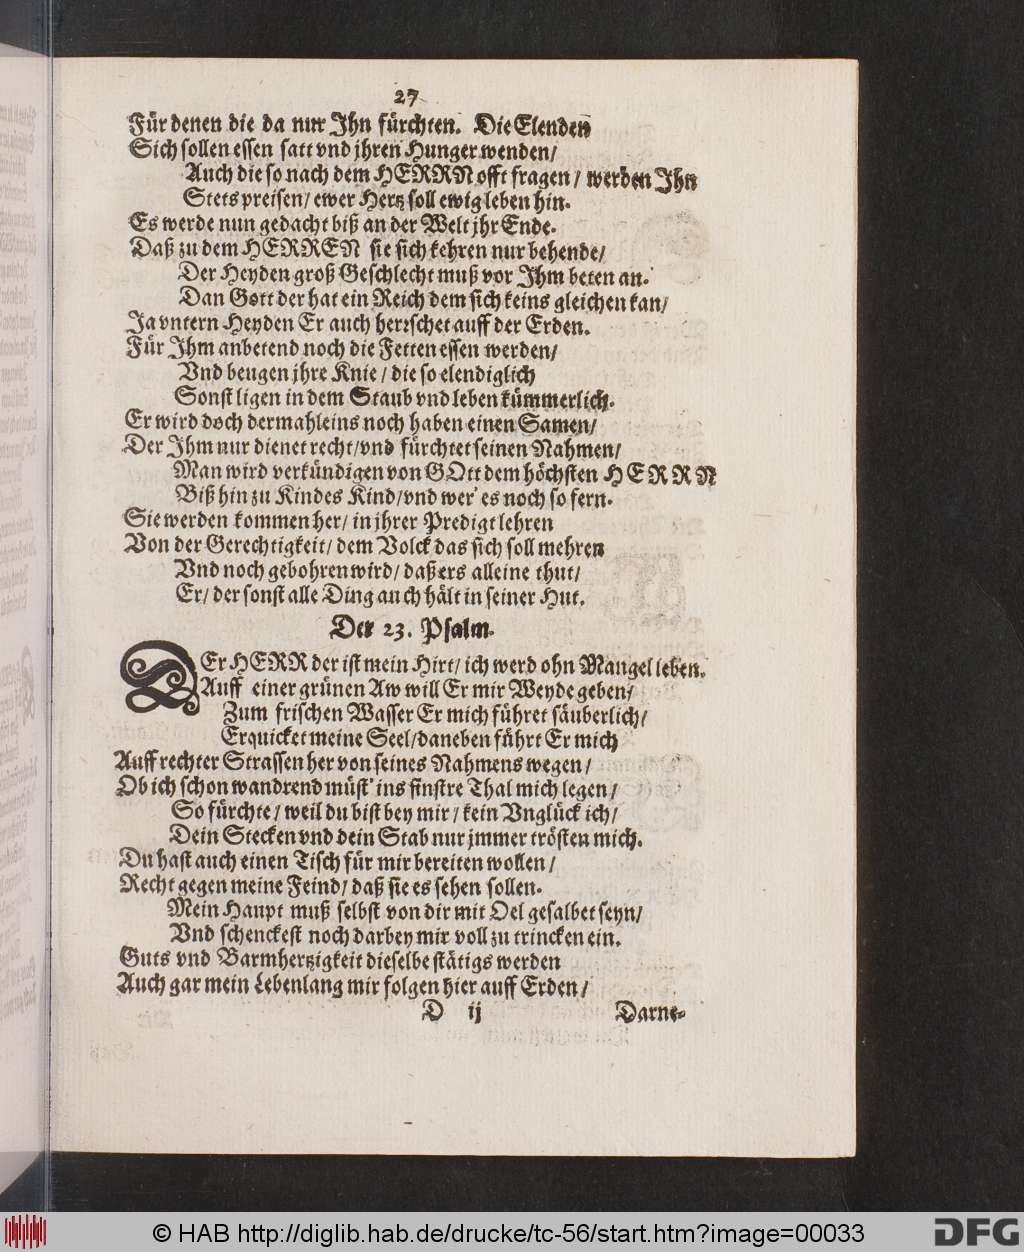 27
Für denen die da nur Ihn fürchten. Die Elenden
Sich sollen essen satt vnd jhren Hunger wenden/
Auch die so nach dem HERRN offt fragen/ werden Ihn
Stets preisen/ ewer Hertz soll ewig leben hin.
Es werde nun gedacht biß an der Welt jhr Ende.
Daß zu dem HERREN sie sich kehren nur behende/
Der Heyden groß Geschlecht muß vor Ihm beten an.
Dan Gott der hat ein Reich dem sich keins gleichen kan/
Ja vntern Heyden Er auch herrschet auff der Erden.
Für Ihm anbetend noch die Fetten essen werden/
Vnd beugen jhre Knie/ die so elendiglich
Sonst ligen in dem Staub vnd leben kümmerlich.
Er wird doch dermahleins noch haben einen Samen/
Der Ihm nur dienet recht/ vnd fürchtet seinen Nahmen/
Man wird verkündigen von GOtt dem höchsten HERRN
Biß hin zu Kindes Kind/ vnd wer' es noch so fern.
Sie werden kommen her/ in jhrer Predigt lehren
Von der Gerechtigkeit/ dem Volck das sich soll mehren
Vnd noch gebohren wird/ daß ers alleine thut/
Er/ der sonst alle Ding auch hält in seiner Hut.
Der 23. Psalm.
DEr HERR der ist mein Hirt/ ich werd ohn Mangel leben.
Auff einer grünen Aw will Er mir Weyde geben/
Zum frischen Wasser Er mich führet säuberlich/
Erquicket meine Seel/ daneben führt Er mich
Auff rechter Strassen her von seines Nahmens wegen/
Ob ich schon wandrend müst' ins finstre Thal mich legen/
So fürchte/ weil du bist bey mir/ kein Vnglück ich/
Dein Stecken vnd dein Stab nur jmmer trösten mich.
Du hast auch einen Tisch für mir bereiten wollen/
Recht gegen meine Feind/ daß sie es sehen sollen.
Mein Haupt muß selbst von dir mit Oel gesalbet seyn/
Vnd schenckest noch darbey mir voll zu trincken ein.
Guts vnd Barmhertzigkeit dieselbe stätigs werden
Auch gar mein Lebenlang mir folgen hier auff Erden/
D ij Darne-
© HAB http://diglib.hab.de/drucke/tc-56/start.htm?image=00033
DFG